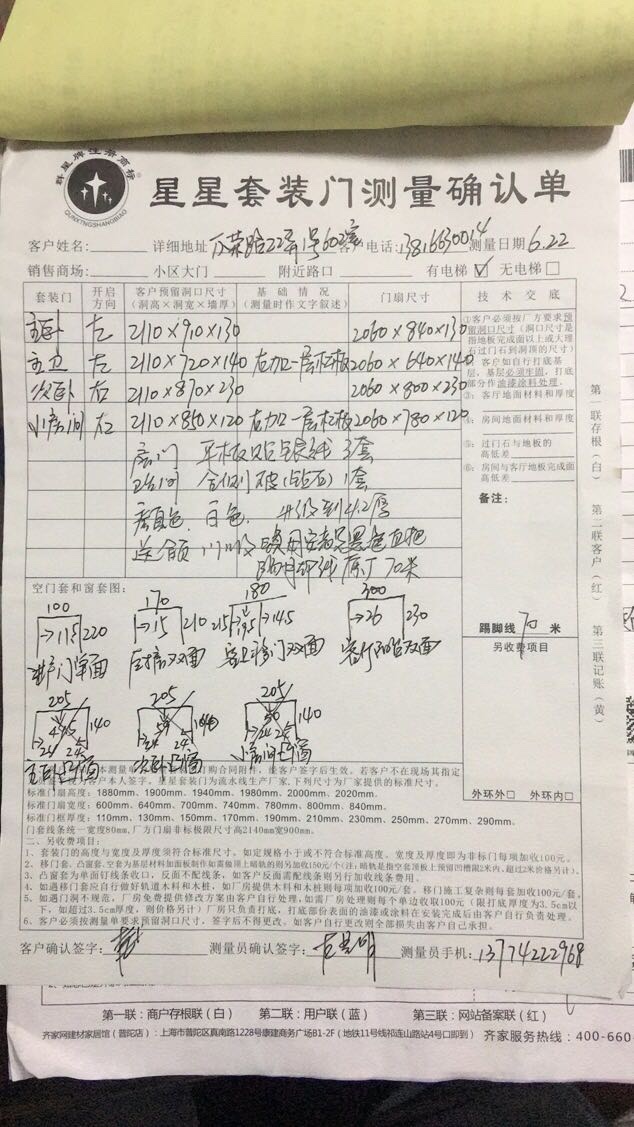 群星牌注册商标
QUNXINGSHANGBIAO
星星套装门测量确认单
客户姓名: 详细地址 22弄1号602室 客户电话: 测量日期 6.22
销售商场: 小区大门 附近路口 有电梯 ☑ 无电梯 □
套装门 开启方向 客户预留洞口尺寸(洞高×洞宽×墙厚) 基础情况(测量时作文字叙述) 门扇尺寸 技术交底
主卧 左 2110×910×130 2060×840×130
主卫 左 2110×720×140 左加一层松板 2060×640×140
次卧 右 2110×870×230 2060×800×230
小房间 右 2110×850×120 右加一层松板 2060×780×120
房门 平板贴银线 3套
卫生间 1套
白色 升级到4.2厚
70米
①客户必须按厂方要求预留洞口尺寸(洞口尺寸是指地板完成面以上或大理石过门石到洞顶的尺寸)
客户如自行打底基层,基层必须牢固,打底部分作油漆涂料处理。
③:客厅地面材料和厚度
④:房间地面材料和厚度
⑤:过门石与地板的高低差
⑥:房间与客厅地板完成面高低差
备注:
踢脚线 70 米
另收费项目
外环外□ 外环内□
第一联存根(白) 第二联客户(红) 第三联记账(黄)
空门套和窗套图:
100 170 180 300
→115 220 →15 210 215 →19.5 →145 →26 230
进户门单面 双面 移门双面 客厅阳台双面
205 205 205
24 24 140 24 24 140 24 24 140
主卧凸窗 次卧凸窗 小房间凸窗
本测量单 订购合同附件,经客户签字后生效。若客户不在现场其指定
客户本人签字。星星套装门为流水线生产厂家,下列尺寸为厂家提供的标准尺寸。
标准门扇高度:1880mm、1900mm、1940mm、1980mm、2000mm、2020mm。
标准门扇宽度:600mm、640mm、700mm、740mm、780mm、800mm、840mm。
标准门框厚度:110mm、130mm、150mm、170mm、190mm、210mm、230mm、250mm、270mm、290mm。
门套线条统一宽度80mm,厂方门扇非标极限尺寸高2140mm宽900mm。
二、另收费项目:
1、套装门的高度与宽度及厚度须符合标准尺寸。如定规格小于或不符合标准高度、宽度及厚度即为非标门每项加收100元。
2、移门套、凸窗套、空套为基层材料加面板制作如需做顶上暗轨的则另加收150元/个(注:暗轨是指空套顶板上预留凹槽限2米内,超过2米价格另计)。
3、凸窗套为单面钉线条收口,反面不配线条,如客户反面需配线条则另行加收线条费用。
4、如遇移门套应自行做好轨道木料和木桩,如厂房提供木料和木桩则每项加收100元/套。移门施工复杂则每套加收100元/套。
5、如遇门洞不规范,厂房免费提供修改方案由客户自行处理,如需厂房处理则每个单边收取100元(限打底厚度为3.5cm以
下,如超过3.5cm厚度,则价格另计)厂房只负责打底,打底部份表面的油漆或涂料在安装完成后由客户自行负责处理。
6、客户必须按测量单要求预留洞口尺寸,签字后不得更改,如客户自行更改则全部损失由客户自己承担。
客户确认签字: 测量员确认签字: 测量员手机: 13774222968
第一联:商户存根联(白) 第二联:用户联(蓝) 第三联:网站备案联(红)
齐家网建材家居馆(普陀店):上海市普陀区真南路1228号康建商务广场B1-2F(地铁11号线祁连山路站4号口即到) 齐家服务热线:400-660-